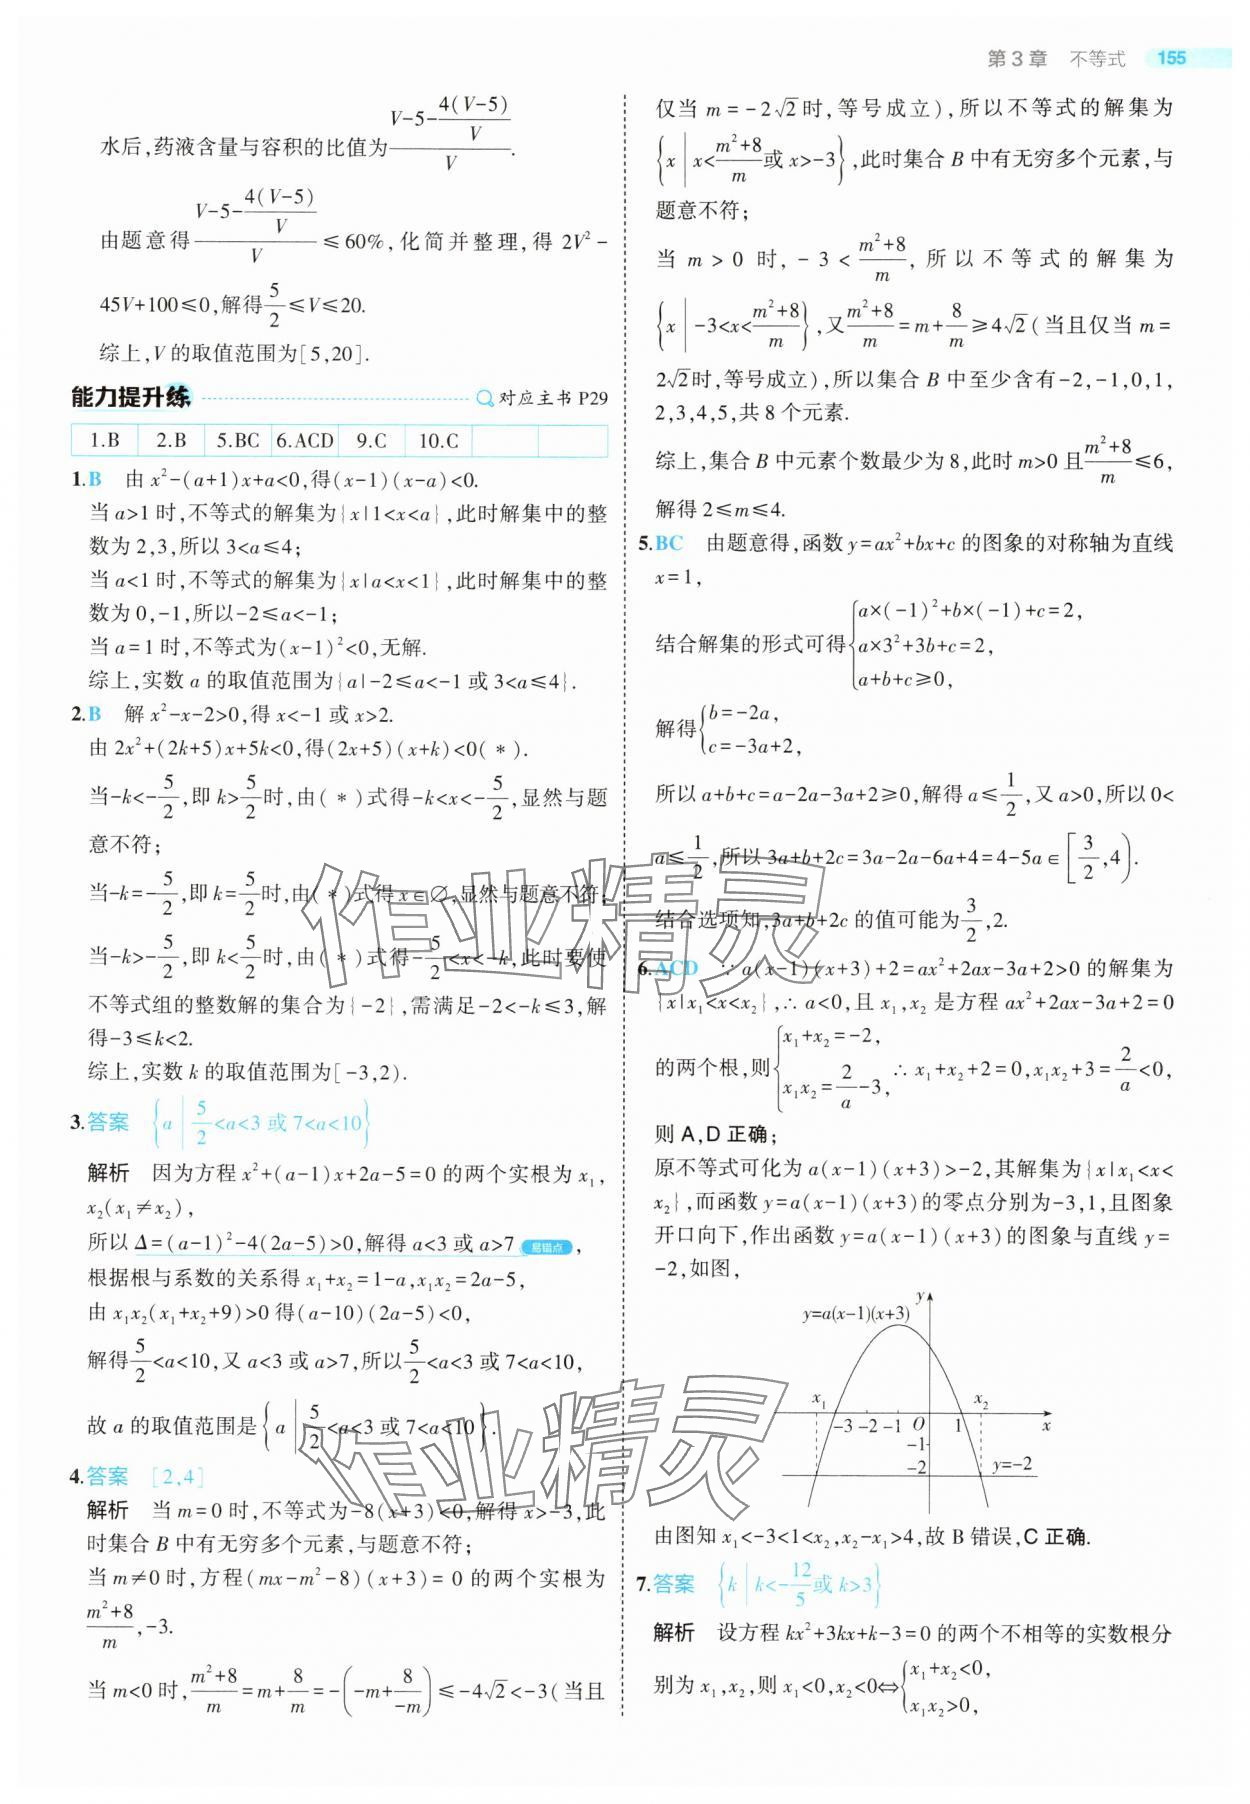 第 3 章 不等式 155
水后,药液含量与容积的比值为$\frac{V-5-\frac{4(V-5)}{V}}{V}$.
由题意得$\frac{V-5-\frac{4(V-5)}{V}}{V}$≤60%,化简并整理,得 2V²-
45V+100≤0,解得$\frac{5}{2}$≤V≤20.
综上,V 的取值范围为[5,20].
能力提升练 对应主书 P29
1.B 2.B 5.BC 6.ACD 9.C 10.C
1.B 由 x²-(a+1)x+a<0,得(x-1)(x-a)<0.
当 a>1 时,不等式的解集为{x|1<x<a},此时解集中的整
数为 2,3,所以 3<a≤4;
当 a<1 时,不等式的解集为{x|a<x<1},此时解集中的整
数为 0,-1,所以-2≤a<-1;
当 a=1 时,不等式为(x-1)²<0,无解.
综上,实数 a 的取值范围为{a|-2≤a<-1 或 3<a≤4}.
2.B 解 x²-x-2>0,得 x<-1 或 x>2.
由 2x²+(2k+5)x+5k<0,得(2x+5)(x+k)<0(*).
当-k<-$\frac{5}{2}$,即 k>$\frac{5}{2}$时,由(*)式得-k<x<-$\frac{5}{2}$,显然与题
意不符;
当-k=-$\frac{5}{2}$,即 k=$\frac{5}{2}$时,由(*)式得 x∈∅,显然与题意不符;
当-k>-$\frac{5}{2}$,即 k<$\frac{5}{2}$时,由(*)式得-$\frac{5}{2}$<x<-k,此时要使
不等式组的整数解的集合为{-2},需满足-2<-k≤3,解
得-3≤k<2.
综上,实数 k 的取值范围为[-3,2).
3.答案 {a|$\frac{5}{2}$<a<3 或 7<a<10}
解析 因为方程 x²+(a-1)x+2a-5=0 的两个实根为 x₁,
x₂(x₁≠x₂),
所以 Δ=(a-1)²-4(2a-5)>0,解得 a<3 或 a>7 易错点,
根据根与系数的关系得 x₁+x₂=1-a,x₁x₂=2a-5,
由 x₁x₂(x₁+x₂+9)>0 得(a-10)(2a-5)<0,
解得$\frac{5}{2}$<a<10,又 a<3 或 a>7,所以$\frac{5}{2}$<a<3 或 7<a<10,
故 a 的取值范围是{a|$\frac{5}{2}$<a<3 或 7<a<10}.
4.答案 [2,4]
解析 当 m=0 时,不等式为-8(x+3)<0,解得 x>-3,此
时集合 B 中有无穷多个元素,与题意不符;
当 m≠0 时,方程(mx-m²-8)(x+3)=0 的两个实根为
$\frac{m²+8}{m}$,-3.
当 m<0 时,$\frac{m²+8}{m}$=m+$\frac{8}{m}$=-(-m+$\frac{8}{-m}$)≤-4√2<-3(当且
仅当 m=-2√2时,等号成立),所以不等式的解集为
{x|x<$\frac{m²+8}{m}$或 x>-3},此时集合 B 中有无穷多个元素,与
题意不符;
当 m>0 时,-3<$\frac{m²+8}{m}$,所以不等式的解集为
{x|-3<x<$\frac{m²+8}{m}$},又$\frac{m²+8}{m}$=m+$\frac{8}{m}$≥4√2(当且仅当 m=
2√2时,等号成立),所以集合 B 中至少含有-2,-1,0,1,
2,3,4,5,共 8 个元素.
综上,集合 B 中元素个数最少为 8,此时 m>0 且$\frac{m²+8}{m}$≤6,
解得 2≤m≤4.
5.BC 由题意得,函数 y=ax²+bx+c 的图象的对称轴为直线
x=1,
结合解集的形式可得{a×(-1)²+b×(-1)+c=2,
a×3²+3b+c=2,
a+b+c≥0,
解得{b=-2a,
c=-3a+2,
所以 a+b+c=a-2a-3a+2≥0,解得 a≤$\frac{1}{2}$,又 a>0,所以 0<
a≤$\frac{1}{2}$,所以 3a+b+2c=3a-2a-6a+4=4-5a∈[$\frac{3}{2}$,4).
结合选项知,3a+b+2c 的值可能为$\frac{3}{2}$,2.
6.ACD ∵a(x-1)(x+3)+2=ax²+2ax-3a+2>0 的解集为
{x|x₁<x<x₂},∴a<0,且 x₁,x₂ 是方程 ax²+2ax-3a+2=0
的两个根,则{x₁+x₂=-2,
x₁x₂=$\frac{2}{a}$-3, ∴x₁+x₂+2=0,x₁x₂+3=$\frac{2}{a}$<0,
则 A,D 正确;
原不等式可化为 a(x-1)(x+3)>-2,其解集为{x|x₁<x<
x₂},而函数 y=a(x-1)(x+3)的零点分别为-3,1,且图象
开口向下,作出函数 y=a(x-1)(x+3)的图象与直线 y=
-2,如图,
y
y=a(x-1)(x+3)
x₁ x₂
-3 -2 -1 O 1 x
-1
-2 y=-2
由图知 x₁<-3<1<x₂,x₂-x₁>4,故 B 错误,C 正确.
7.答案 {k|k<-$\frac{12}{5}$或 k>3}
解析 设方程 kx²+3kx+k-3=0 的两个不相等的实数根分
别为 x₁,x₂,则 x₁<0,x₂<0⇔{x₁+x₂<0,
x₁x₂>0,
作业精灵
作业精灵